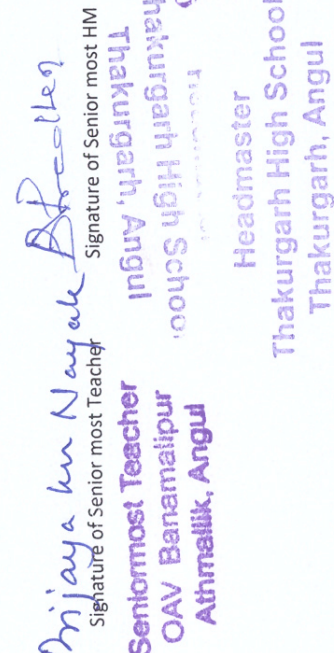 Nayak
Signature of Senior most Teacher
Seniormost Teacher
OAV Banamalipur
Athmallik, Angul
Signature of Senior most HM
Thakurgarh High School
Thakurgarh, Angul
Headmaster
Thakurgarh High School
Thakurgarh, Angul